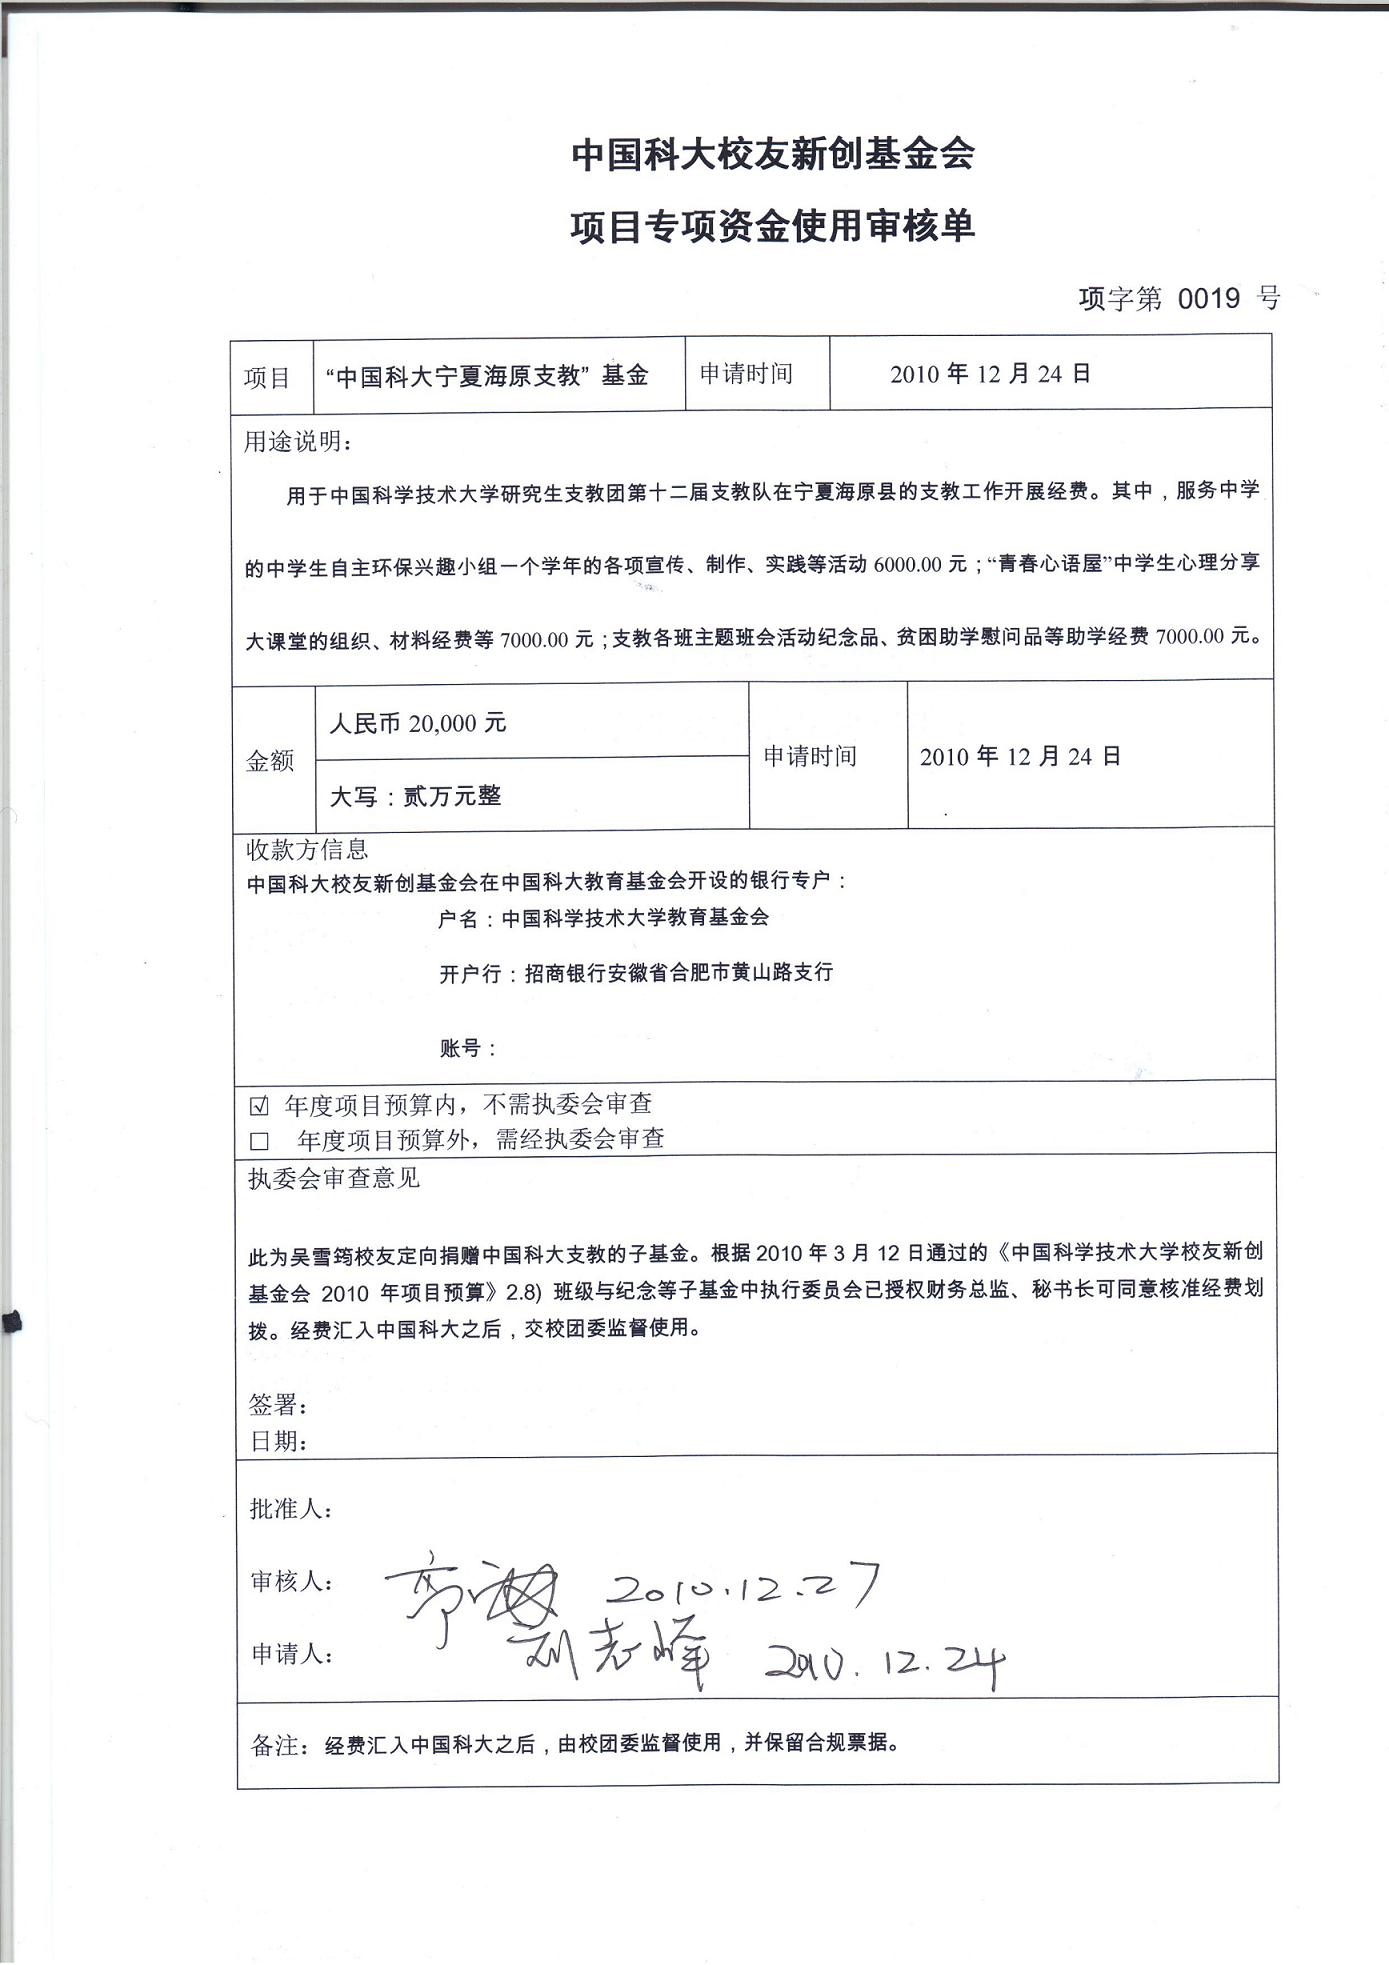 中国科大校友新创基金会
项目专项资金使用审核单
项字第 0019 号
项目 “中国科大宁夏海原支教”基金 申请时间 2010 年 12 月 24 日
用途说明:
用于中国科学技术大学研究生支教团第十二届支教队在宁夏海原县的支教工作开展经费。其中，服务中学
的中学生自主环保兴趣小组一个学年的各项宣传、制作、实践等活动 6000.00 元；“青春心语屋”中学生心理分享
大课堂的组织、材料经费等 7000.00 元；支教各班主题班会活动纪念品、贫困助学慰问品等助学经费 7000.00 元。
金额 人民币 20,000 元 申请时间 2010 年 12 月 24 日
大写：贰万元整
收款方信息
中国科大校友新创基金会在中国科大教育基金会开设的银行专户：
户名：中国科学技术大学教育基金会
开户行：招商银行安徽省合肥市黄山路支行
账号：
☑ 年度项目预算内，不需执委会审查
□ 年度项目预算外，需经执委会审查
执委会审查意见
此为吴雪筠校友定向捐赠中国科大支教的子基金。根据 2010 年 3 月 12 日通过的《中国科学技术大学校友新创
基金会 2010 年项目预算》2.8) 班级与纪念等子基金中执行委员会已授权财务总监、秘书长可同意核准经费划
拨。经费汇入中国科大之后，交校团委监督使用。
签署:
日期:
批准人:
审核人: 2010.12.27
申请人: 刘志峰 2010.12.24
备注: 经费汇入中国科大之后，由校团委监督使用，并保留合规票据。